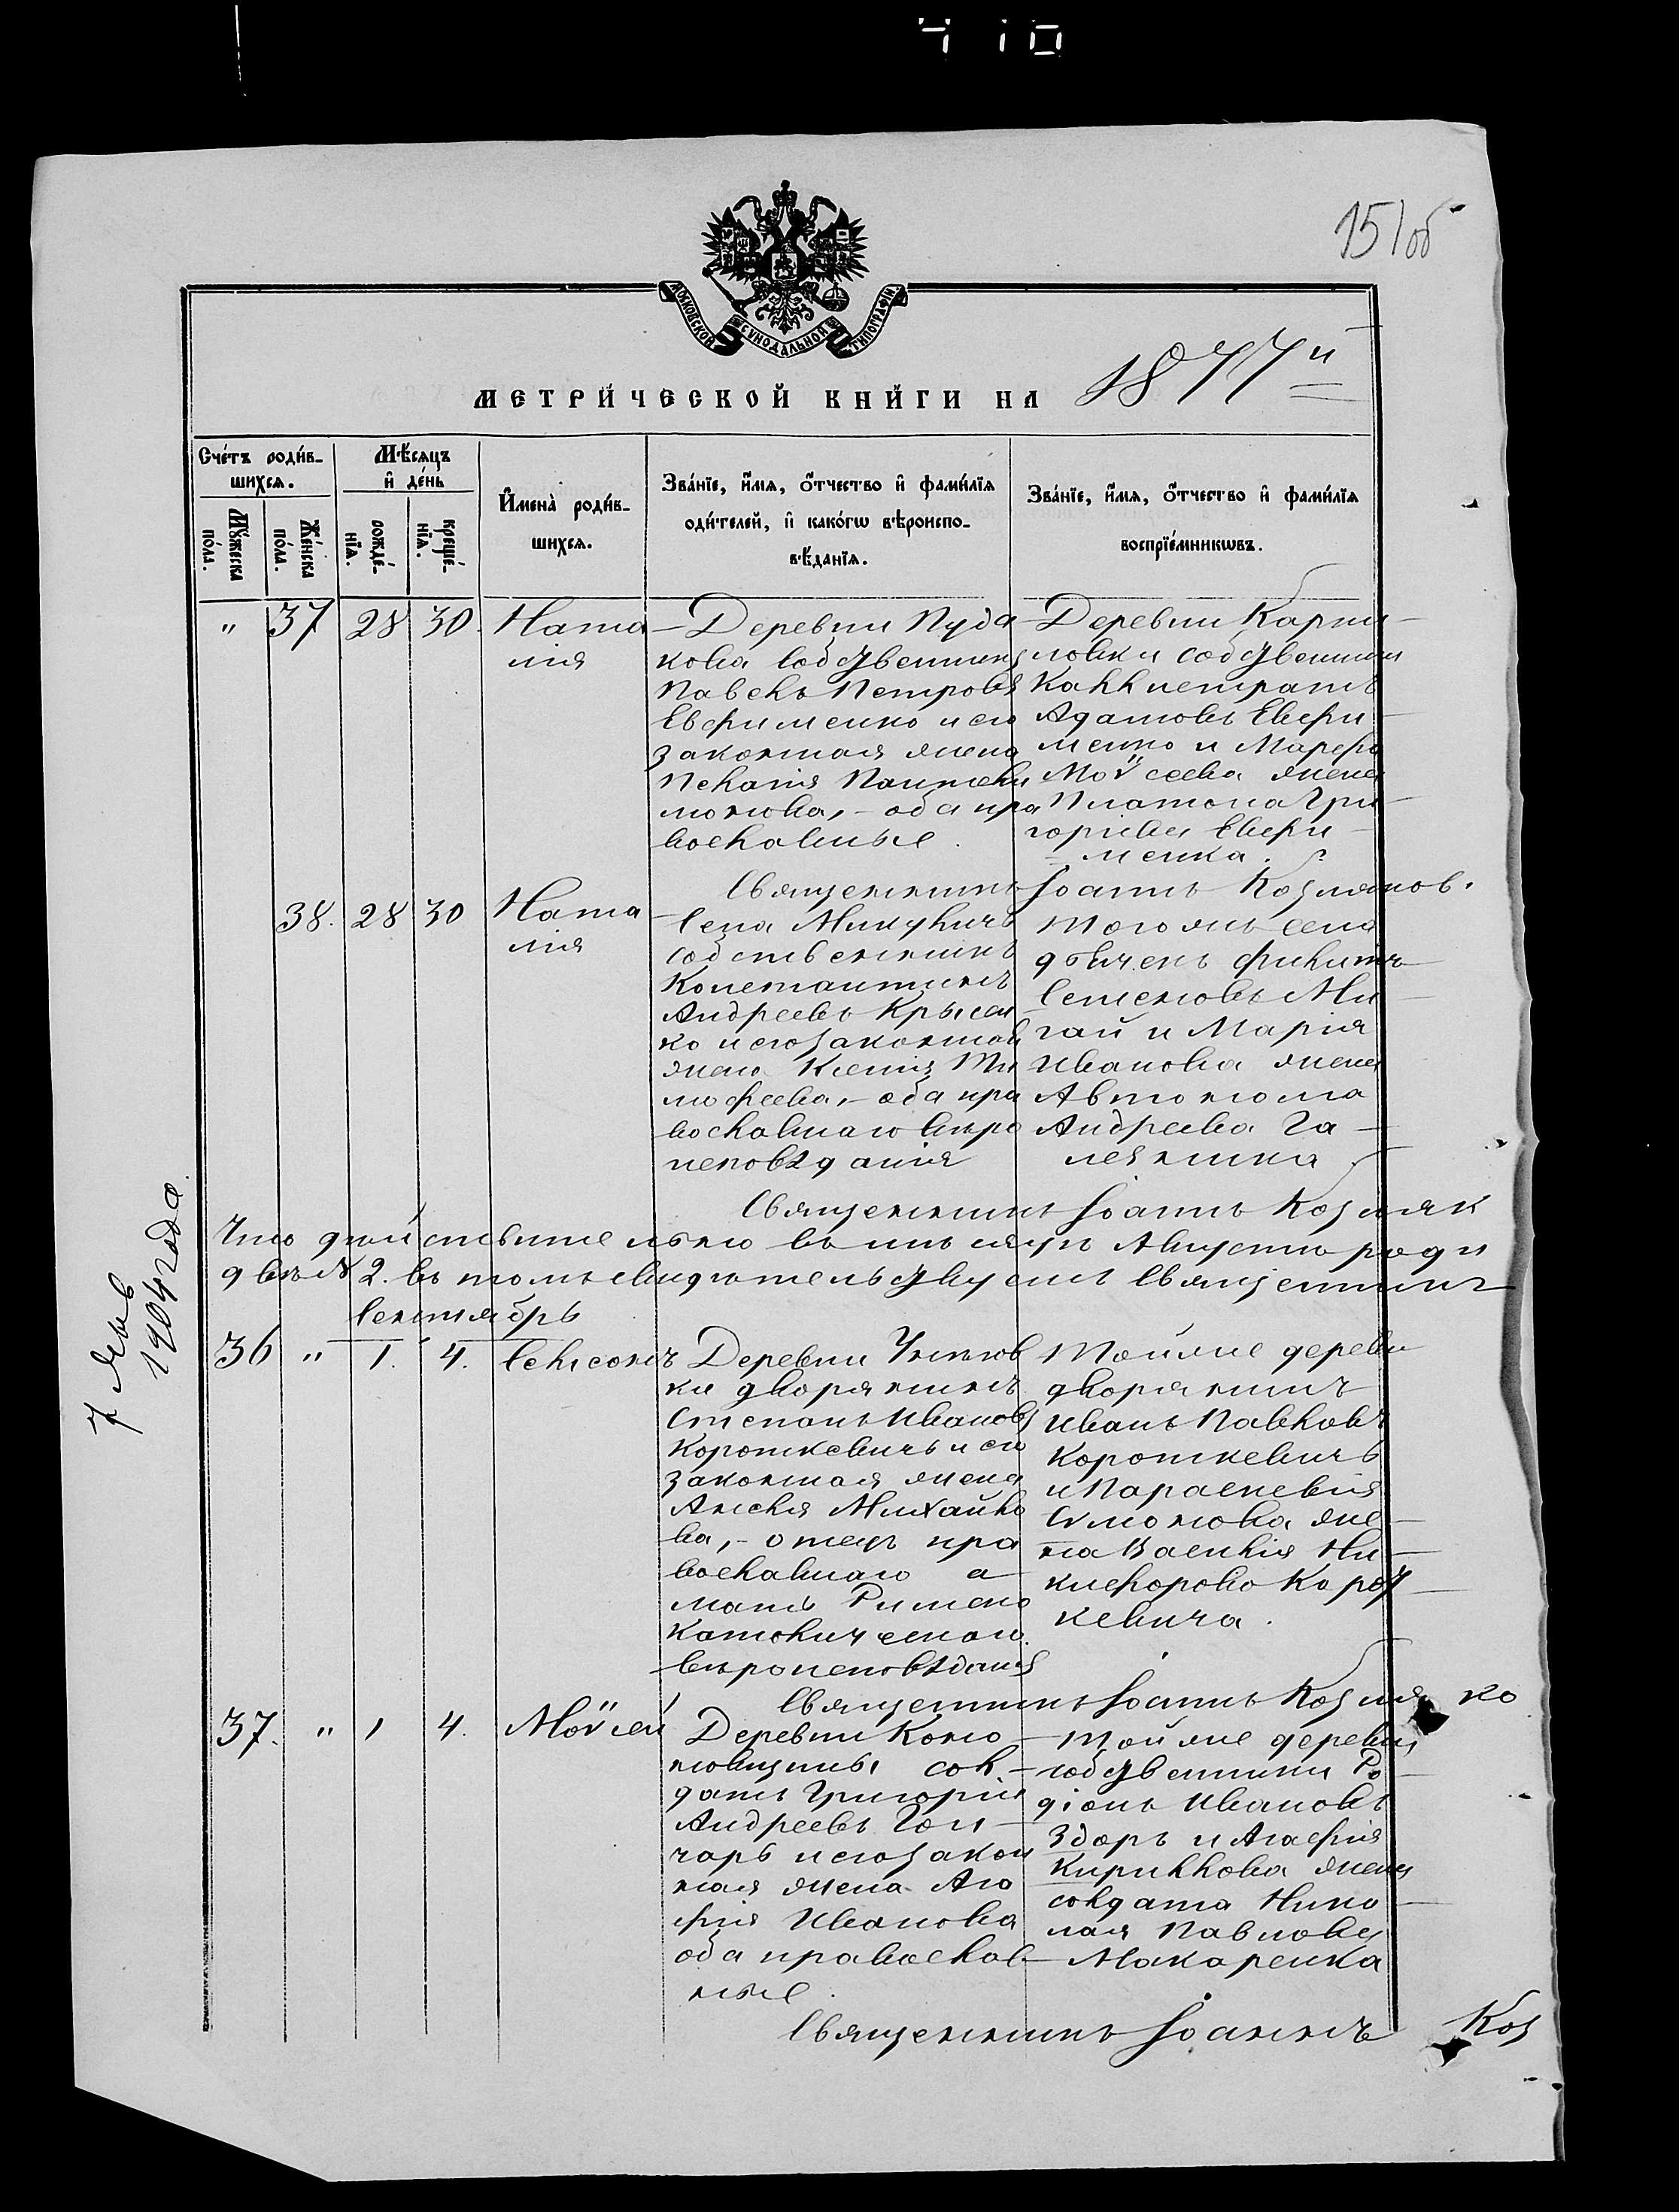 410
151 об
МОСКОВСКОЙ СѴНОДАЛЬНОЙ ТИПОГРАФІИ
МЕТРИ́ЧЕСКОЙ КНИ́ГИ НА 1877й
Сче́тъ роди́в-
шихсѧ.
Мꙋ́жеска
по́ла.
Же́нска
по́ла.
Мѣ́сяцъ
и҆ де́нь
рожде́-
нїѧ.
креще́-
нїѧ.
И҆мена̀ роди́в-
шихсѧ.
Зва́нїе, и҆́мѧ, ѻ҆́тчество и҆ фами́лїѧ
оди́телей, и҆ како́гѡ вѣроиспо-
вѣ́данїѧ.
Зва́нїе, и҆́мѧ, ѻ҆́тчество и҆ фами́лїѧ
воспрїе́мникѡвъ.
" 37 28 30. Ната
лія
Деревни Пуда
кова собственникъ
Павелъ Петровъ
Евфименко и его
законная жена
Пелагія Пантели
монова, - оба пра
вославные.
Деревни Карпи
ловки собственники
Каллистратъ
Адамовъ Евфи
менко и Марфа
Моѷсеева жена
Платона Гри
горіева Евфи
менка.
Священникъ Іоаннъ Козмяков.
38. 28 30 Ната
лія
Села Микуличъ
собственникъ
Константинъ
Андреевъ Крысен
ко и его законная
жена Ксенія Ти
мофеева, - оба пра
вославнаго вѣро
исповѣданія
Того же села
дьячекъ Филиппъ
Семеновъ Ми
гай и Марія
Иванова жена
Автонома
Андреева Га
лея
Священникъ Іоаннъ Козмяк
Что дѣйствительно въ мѣсяцѣ Августѣ роди
2. въ томъ свидѣтельствуетъ Священникъ
Сентябрь
36 " 1. 4. Самсонъ
Деревни
ки дворянинъ
Степанъ Ивановъ
Короткевичъ и его
законная жена
Анеля Михайло
ва, - отецъ пра
вославнаго а
мать Римско
Католическаго
вѣроисповѣданія
Той же деревни
дворянинъ
Иванъ Павловъ
Короткевичъ
и Параскевія
Сѷмонова же
на Василія Ни
кифорова Корот
кевича.
Священникъ Іоаннъ Козмя ко
37. " 1 4. Моѷсей
Деревни Коно
новщины сол
датъ Григорій
Андреевъ Гон
чаръ и его закон
ная жена Ага
фія Иванова
оба православ
ные.
Той же деревни
собственники Ро
діонъ Ивановъ
Здоръ и Агафія
Кириллова жена
солдата Нико
лая Павлова
Макаренка
Священникъ Іоаннъ Коз
7 Янв
1904 года.